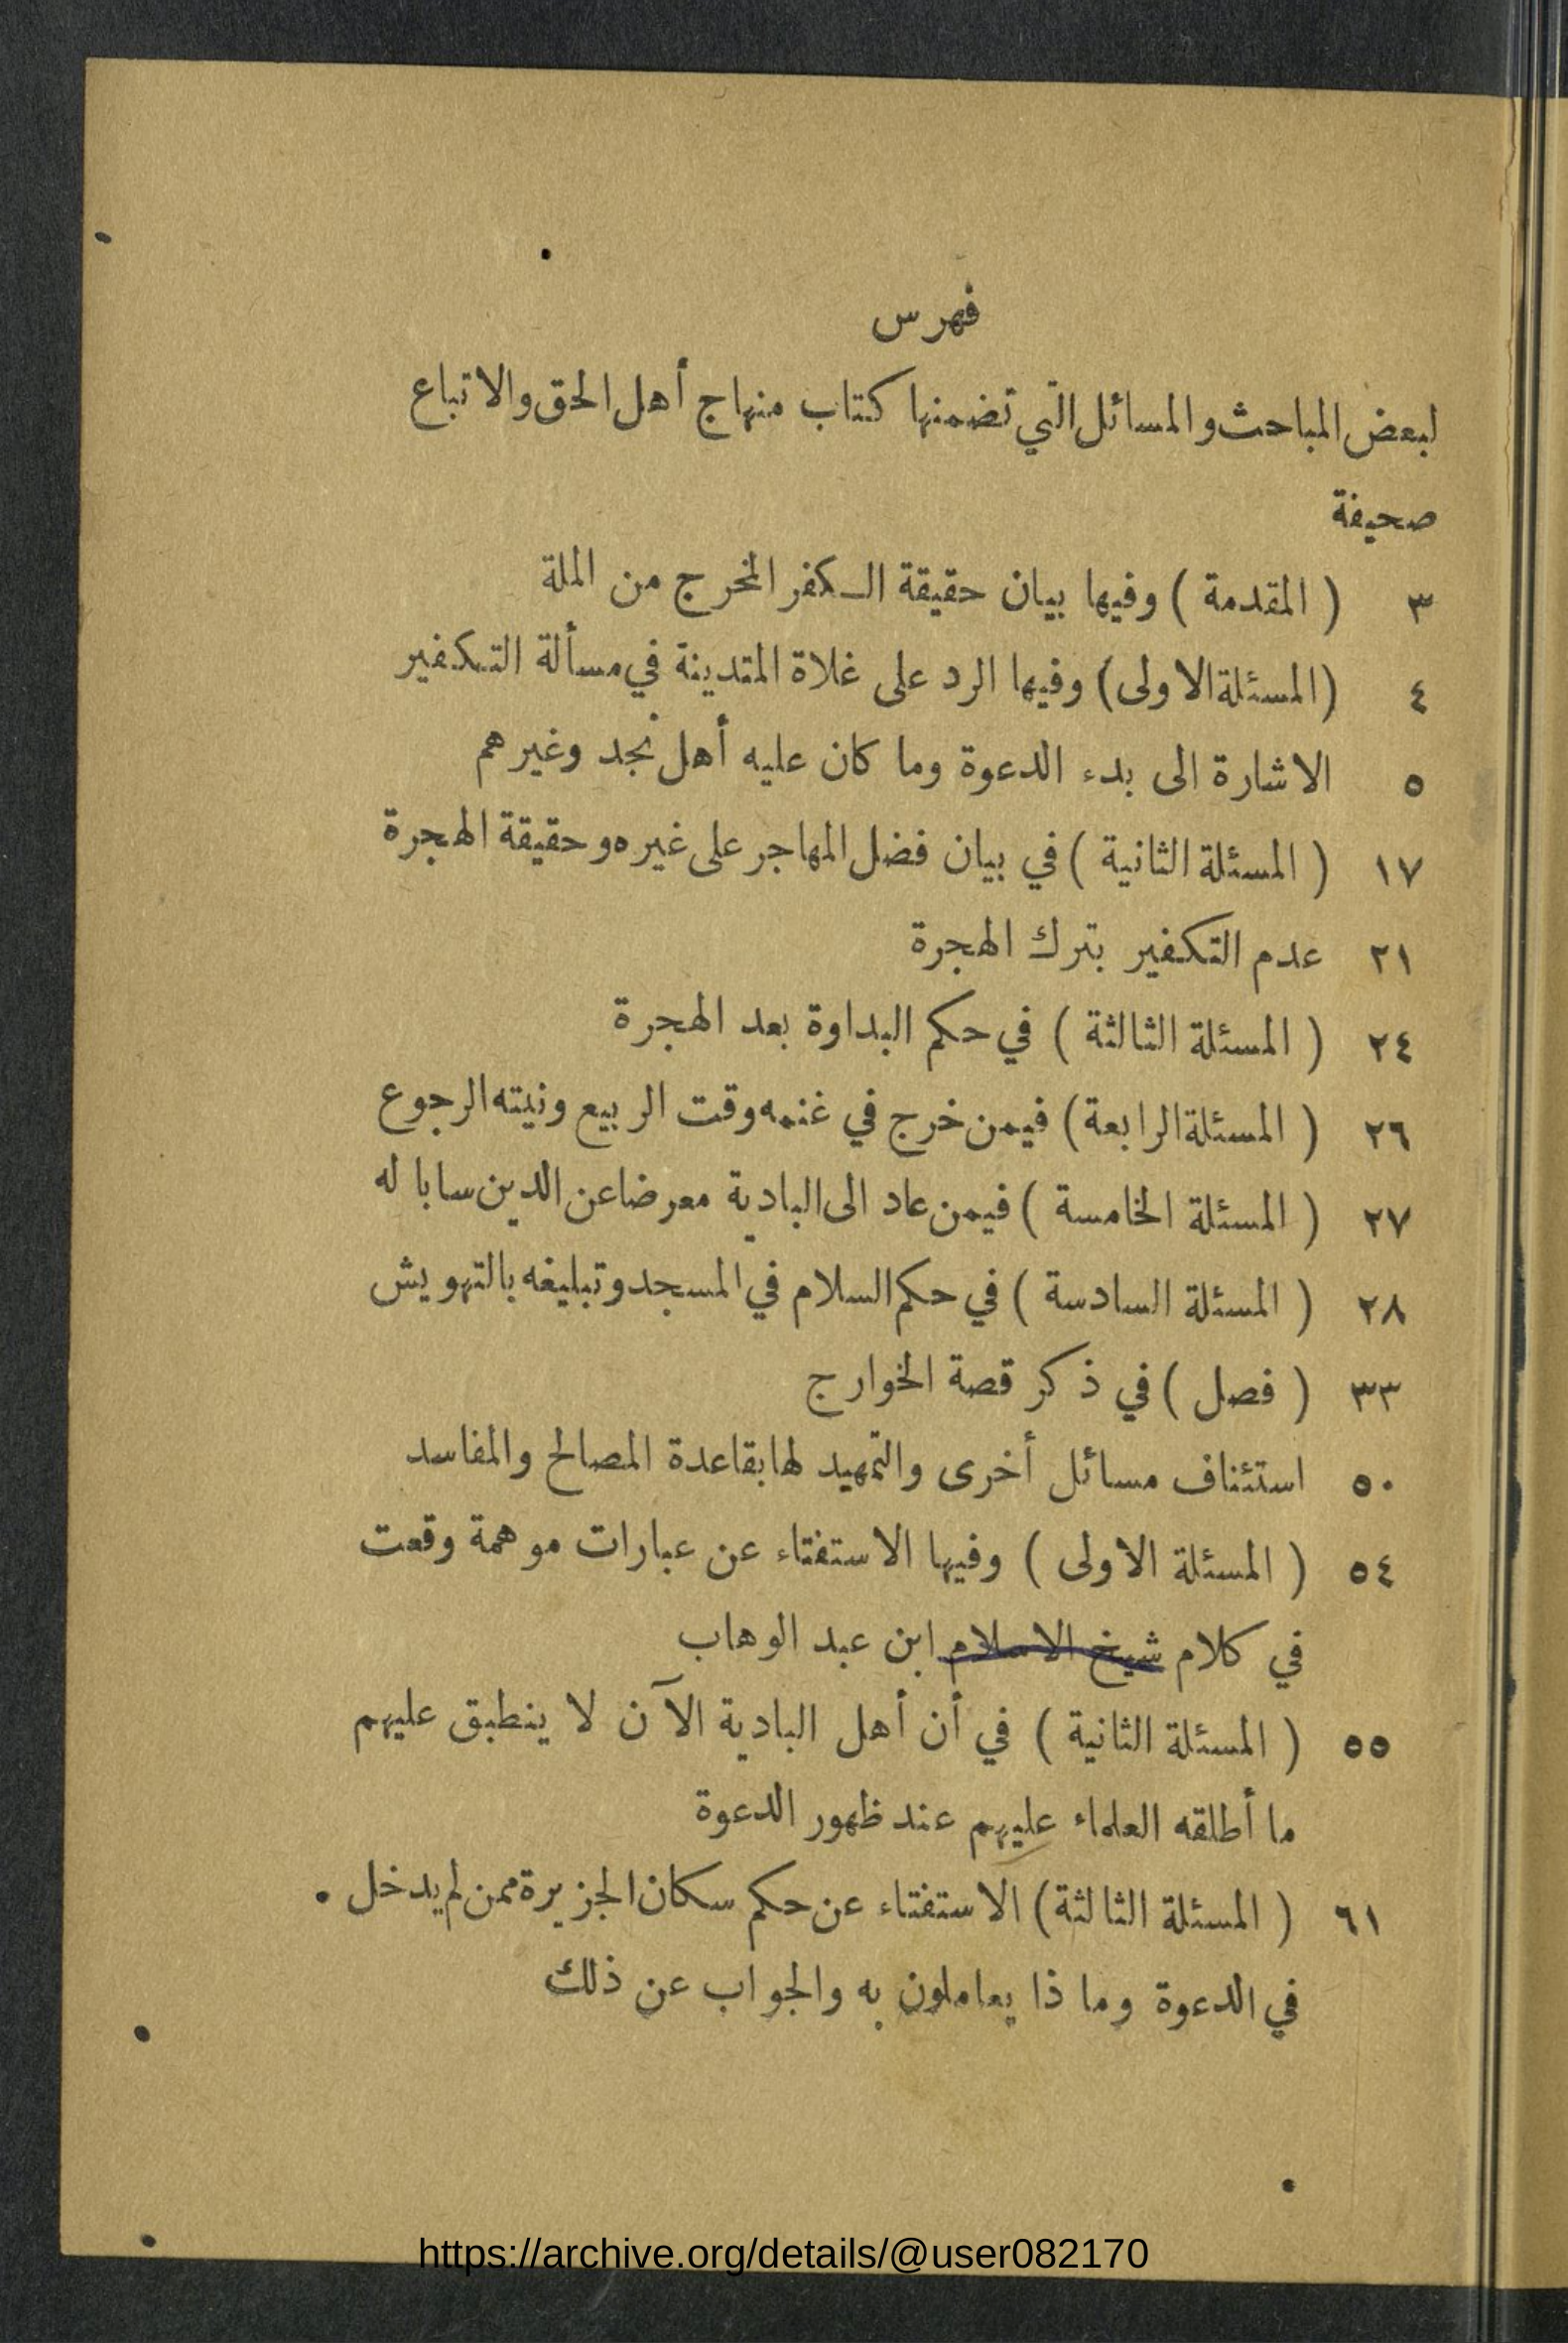 فهرس
لبعض المباحث والمسائل التي تضمنها كتاب منهاج أهل الحق والاتباع
صحيفة
٣ ( المقدمة ) وفيها بيان حقيقة الكفر المخرج من الملة
٤ (المسئلة الاولى) وفيها الرد على غلاة المتدينة في مسألة التكفير
٥ الاشارة الى بدء الدعوة وما كان عليه أهل نجد وغيرهم
١٧ ( المسئلة الثانية ) في بيان فضل المهاجر على غيره وحقيقة الهجرة
٢١ عدم التكفير بترك الهجرة
٢٤ ( المسئلة الثالثة ) في حكم البداوة بعد الهجرة
٢٦ ( المسئلة الرابعة) فيمن خرج في غنمه وقت الربيع ونيته الرجوع
٢٧ ( المسئلة الخامسة ) فيمن عاد الى البادية معرضا عن الدين سابا له
٢٨ ( المسئلة السادسة ) في حكم السلام في المسجد وتبليغه بالتهويش
٣٣ ( فصل ) في ذكر قصة الخوارج
٥٠ استئناف مسائل أخرى والتمهيد لها بقاعدة المصالح والمفاسد
٥٤ ( المسئلة الاولى ) وفيها الاستفتاء عن عبارات موهمة وقعت
في كلام شيخ الاسلام ابن عبد الوهاب
٥٥ ( المسئلة الثانية ) في أن أهل البادية الآن لا ينطبق عليهم
ما أطلقه العلماء عليهم عند ظهور الدعوة
٦١ ( المسئلة الثالثة) الاستفتاء عن حكم سكان الجزيرة ممن لم يدخل
في الدعوة وما ذا يعاملون به والجواب عن ذلك
https://archive.org/details/@user082170